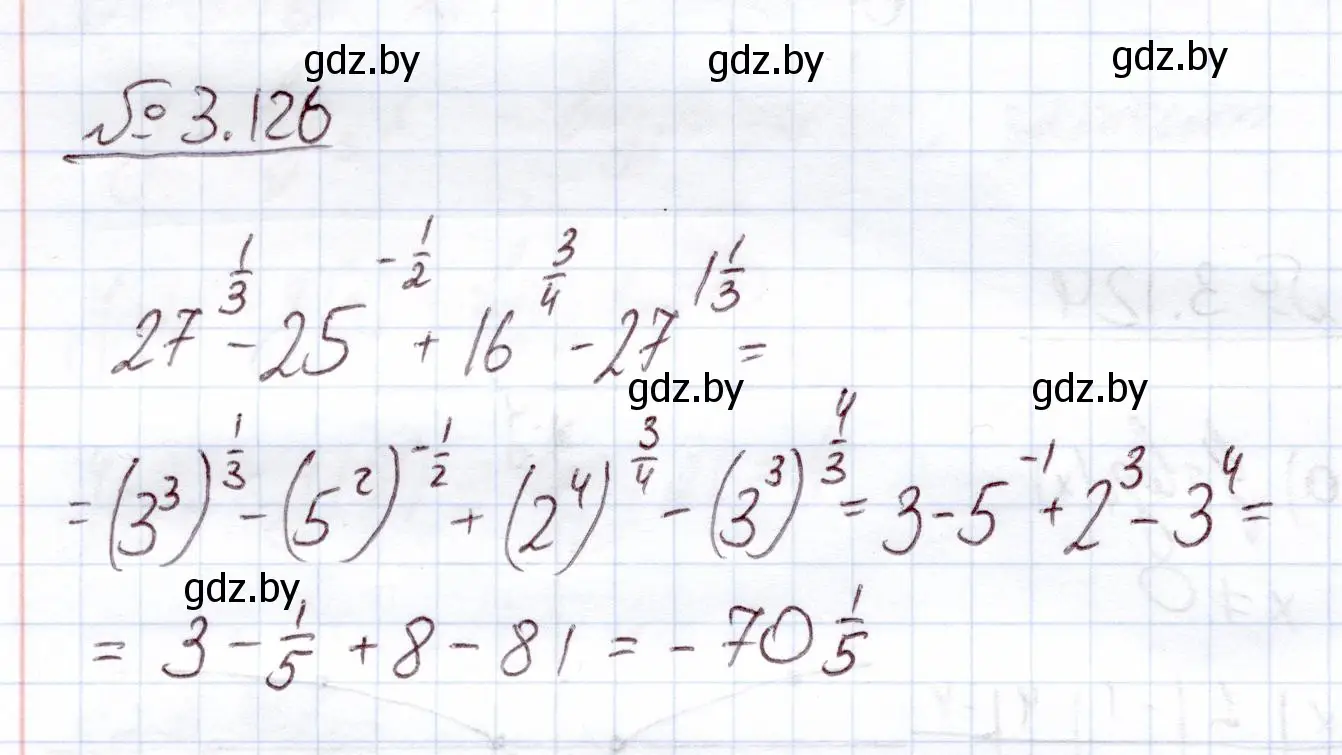 gdz.by gdz.by gdz.by
№ 3.126
27^{\frac{1}{3}} - 25^{-\frac{1}{2}} + 16^{\frac{3}{4}} - 27^{1\frac{1}{3}} =
gdz.by gdz.by
= (3^3)^{\frac{1}{3}} - (5^2)^{-\frac{1}{2}} + (2^4)^{\frac{3}{4}} - (3^3)^{\frac{4}{3}} = 3 - 5^{-1} + 2^3 - 3^4 =
gdz.by
= 3 - \frac{1}{5} + 8 - 81 = - 70\frac{1}{5}